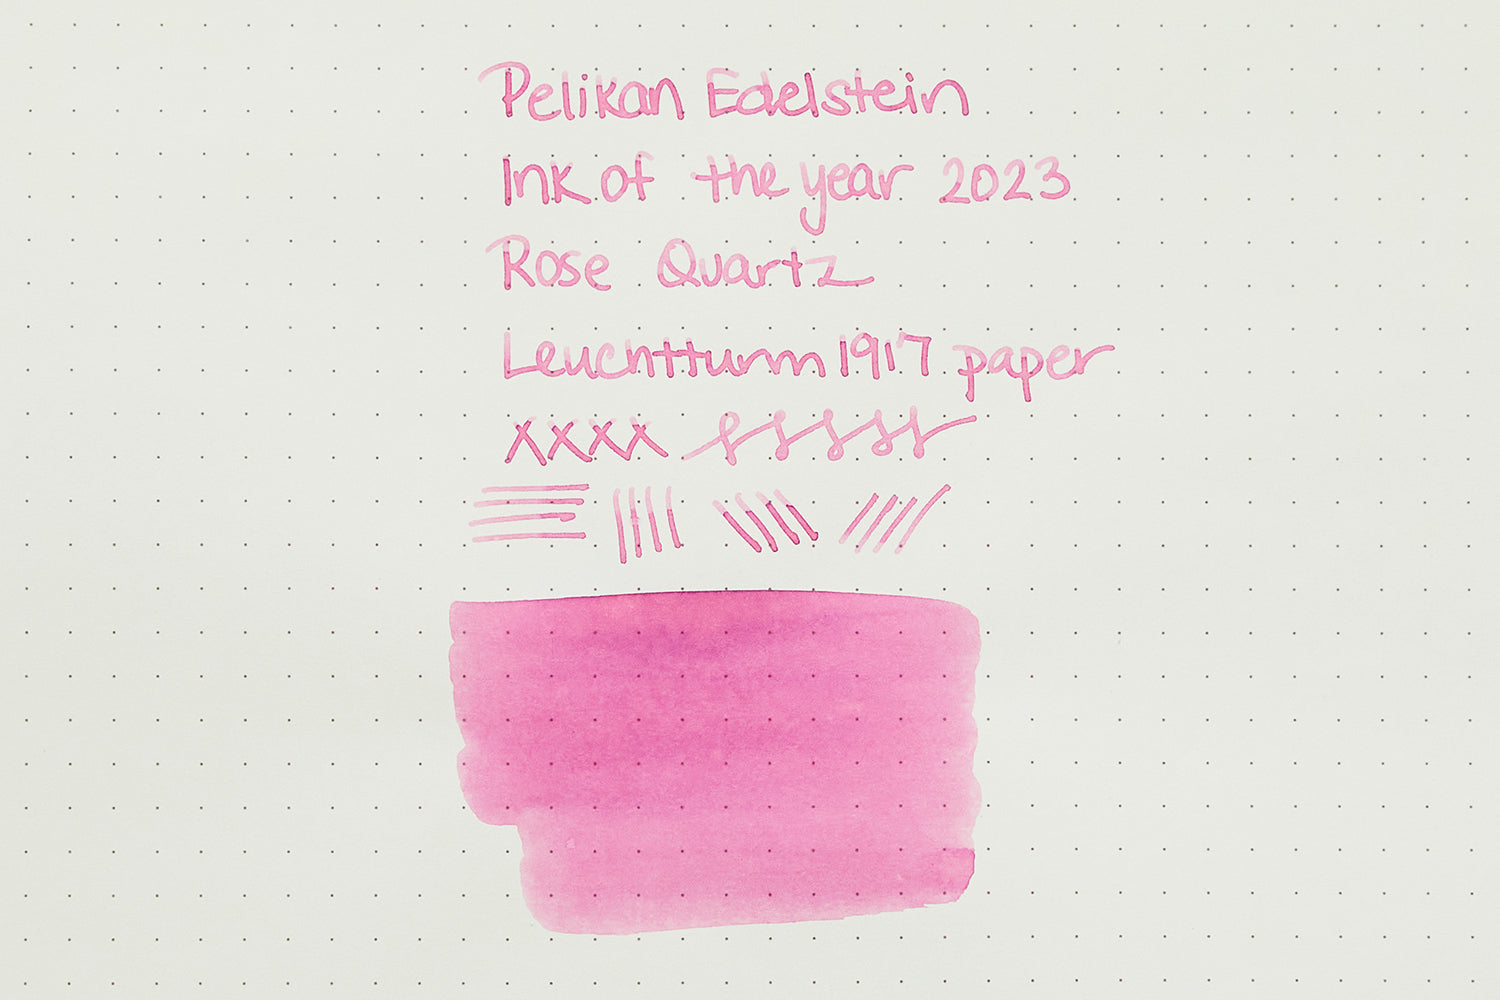 Pelikan Edelstein
Ink of the year 2023
Rose Quartz
Leuchtturm1917 paper
xxxx